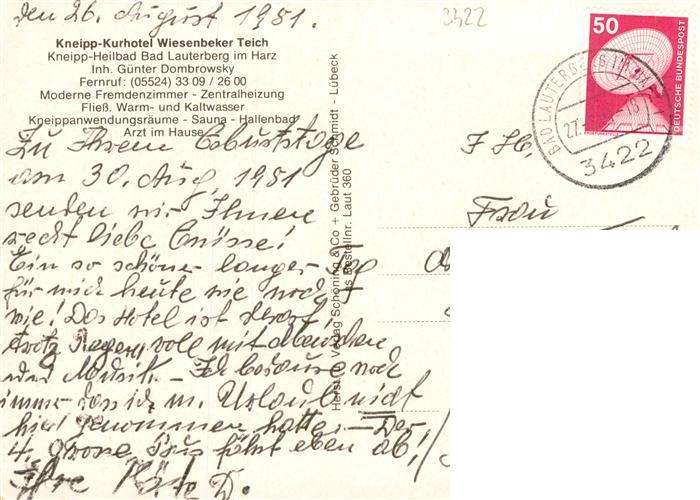 den 26. August 1981.
3422
Kneipp-Kurhotel Wiesenbeker Teich
Kneipp-Heilbad Bad Lauterberg im Harz
Inh. Günter Dombrowsky
Fernruf: (05524) 33 09 / 26 00
Moderne Fremdenzimmer - Zentralheizung
Fließ. Warm- und Kaltwasser
Kneippanwendungsräume - Sauna - Hallenbad
Arzt im Hause
Zu Ihrem Geburtstage
am 30. Aug. 1981
senden wir Ihnen
recht liebe Grüsse!
Ein so schöner langer Tag
für mich heute wie noch
nie! Das Hotel ist
trotz Regen, voll mit
und Musik. - Ich bedaure noch
immer dass ich m. Urlaub nicht
hier genommen hatte. - Der
4. grosse Bus fährt eben ab!
Ihre D.
Schöning & Co + Gebrüder Schmidt - Lübeck
Bestellnr. Laut 360
50
DEUTSCHE BUNDESPOST
BAD LAUTERBERG
27.
18
3422
Frau